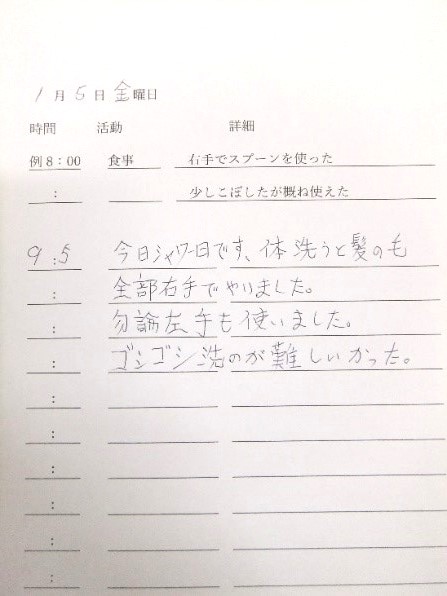 1月5日金曜日
時間 活動 詳細
例8：00 食事 右手でスプーンを使った
： 少しこぼしたが概ね使えた
9：5 今日シャワー日です、体洗うと髪の毛
： 全部右手でやりました。
： 勿論左手も使いました。
： ゴシゴシ洗のが難しいかった。
：
：
：
：
：
：